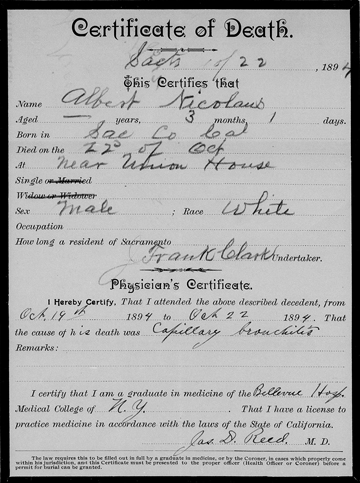 Certificate of Death.
Sacto 10/22, 1894
This Certifies that
Name Albert Nicolaus
Aged — years, 3 months, 1 days
Born in Sac Co Cal
Died on the 22d of Oct
At Near Union House
Single or Married
Widow or Widower
Sex Male ; Race White
Occupation
How long a resident of Sacramento
Frank Clark Undertaker.
Physician's Certificate.
I Hereby Certify, That I attended the above described decedent, from
Oct. 19th 1894 to Oct 22 1894. That
the cause of his death was Capillary bronchitis
Remarks:
I certify that I am a graduate in medicine of the Bellevue Hosp.
Medical College of N.Y. . That I have a license to
practice medicine in accordance with the laws of the State of California.
Jas. D. Reed M. D.
The law requires this to be filled out in full by a graduate in medicine, or by the Coroner, in cases which properly come
within his jurisdiction, and this Certificate must be presented to the proper officer (Health Officer or Coroner) before a
permit for burial can be granted.